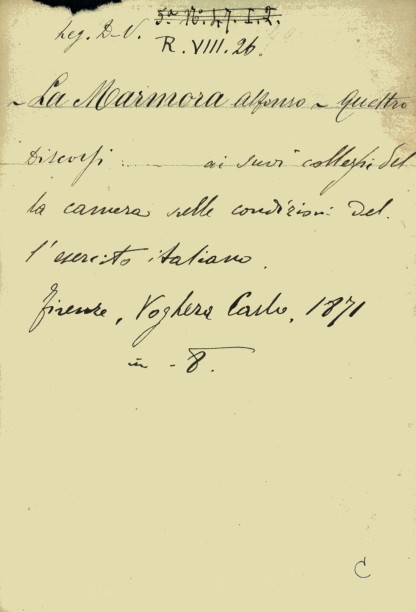 5ª Nº 47. I. 2.
Leg. D-V.
R. VIII. 26.
~ La Marmora Alfonso ~ Quattro
Discorsi ai suoi colleghi del
la camera sulle condizioni del.
l'esercito italiano.
Firenze, Voghera Carlo, 1871
in - 8.
C